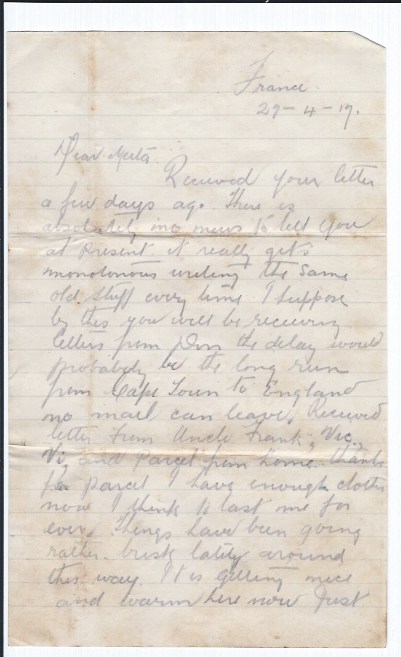 France
29-4-17.
Dear Meta.
Received your letter
a few days ago. There is
absolutely no news to tell you
at Present it really gets
monotonous writing the same
old stuff every time. I suppose
by this you will be receiving
letters from Don the delay would
probabely be the long run
from Cape Town to England
no mail can leave. Received
letter From Uncle Frank, Vec,
Vi and Parcel from home. Thanks
for Parcel I have enough clothes
now I think to last me for
ever. Things have been going
rather brisk lately around
this way. It is getting nice
and warm here now Just